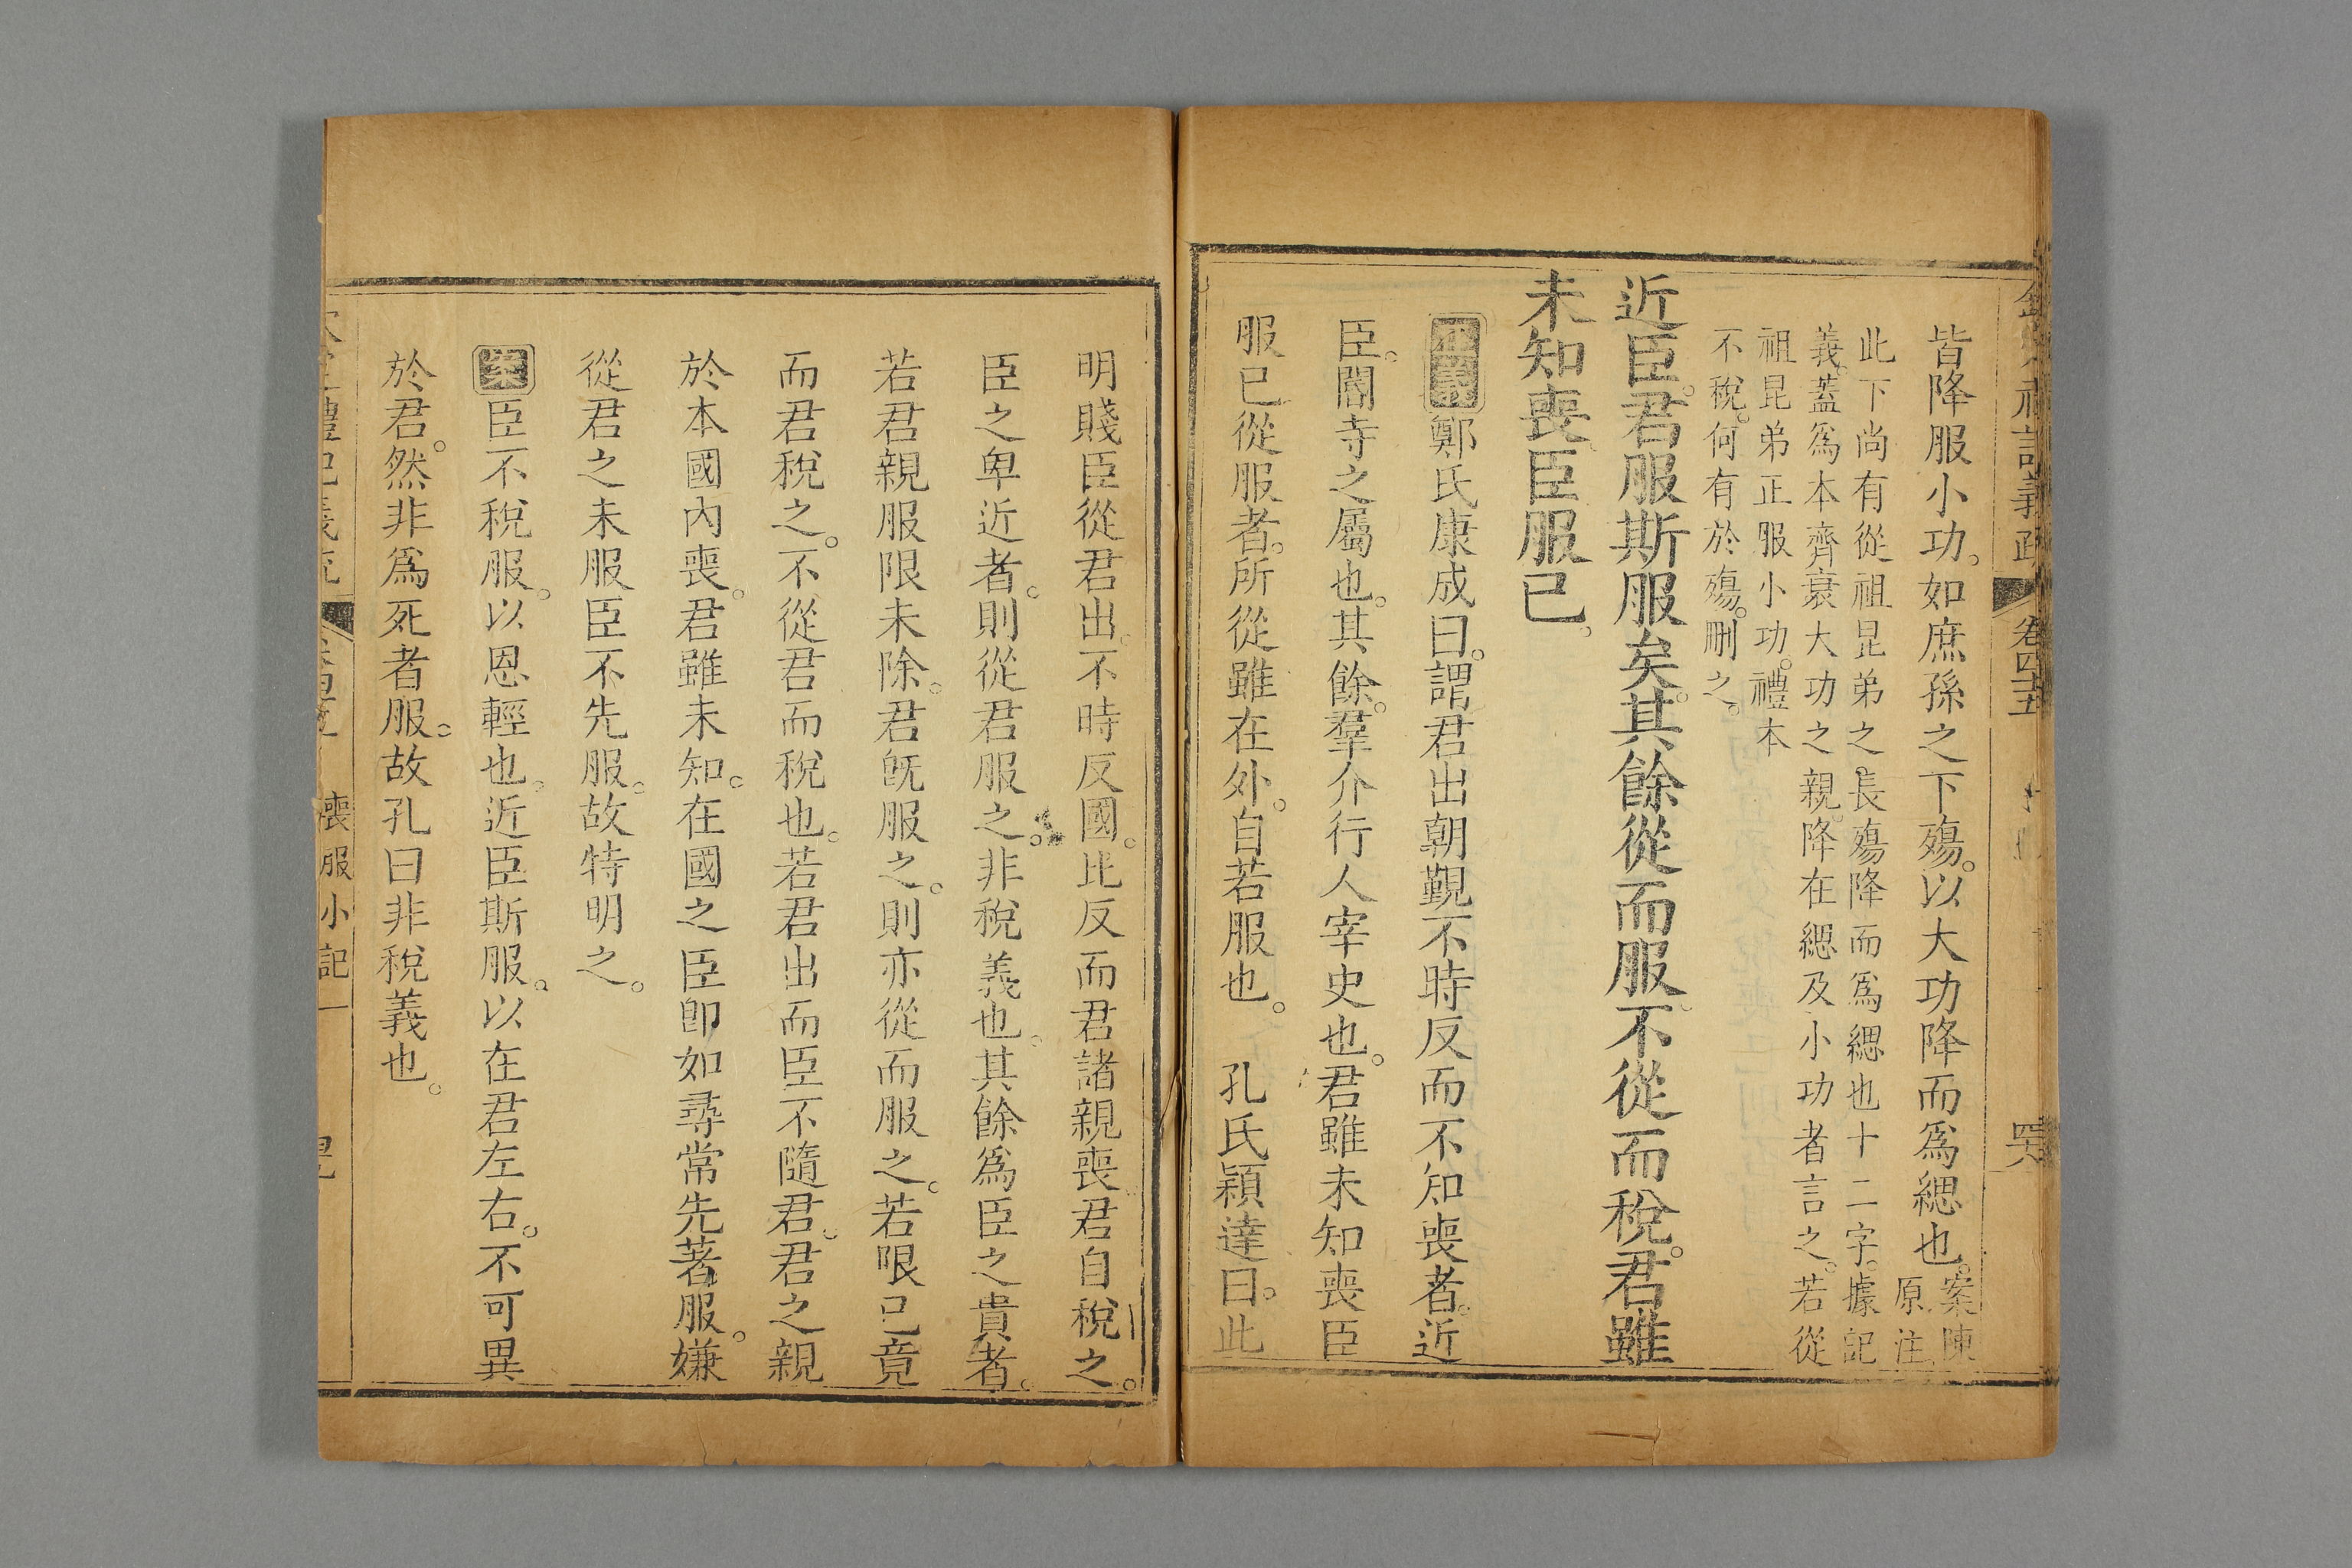 皆降服小功。如庶孫之下殤。以大功降而爲緦也。案陳原注
此下尚有從祖昆弟之長殤降而爲緦也十二字。據記
義。蓋爲本齊衰大功之親。降在緦及小功者言之。若從
祖昆弟正服小功。禮本
不稅。何有於殤。刪之。
近臣。君服斯服矣。其餘從而服。不從而稅。君雖
未知喪。臣服已。
正義鄭氏康成曰。謂君出朝覲不時反而不知喪者。近
臣。閽寺之屬也。其餘。羣介行人宰史也。君雖未知喪臣
服已從服者。所從雖在外。自若服也。 孔氏穎達曰。此
卷四十五
明賤臣從君出。不時反國。比反而君諸親喪君自稅之。
臣之卑近者。則從君服之。非稅義也。其餘爲臣之貴者。
若君親服限未除。君旣服之。則亦從而服之。若限已竟
而君稅之。不從君而稅也。若君出而臣不隨君。君之親
於本國內喪。君雖未知。在國之臣卽如尋常先著服。嫌
從君之未服臣不先服。故特明之。
案臣不稅服。以恩輕也。近臣斯服。以在君左右。不可異
於君。然非爲死者服。故孔曰非稅義也。
喪服小記